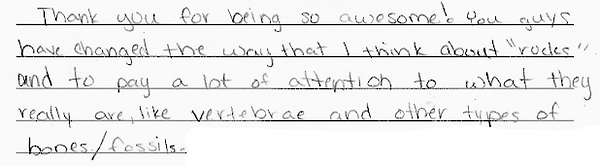 Thank you for being so awesome! You guys
have changed the way that I think about "rocks"
and to pay a lot of attention to what they
really are, like vertebrae and other types of
bones/fossils.